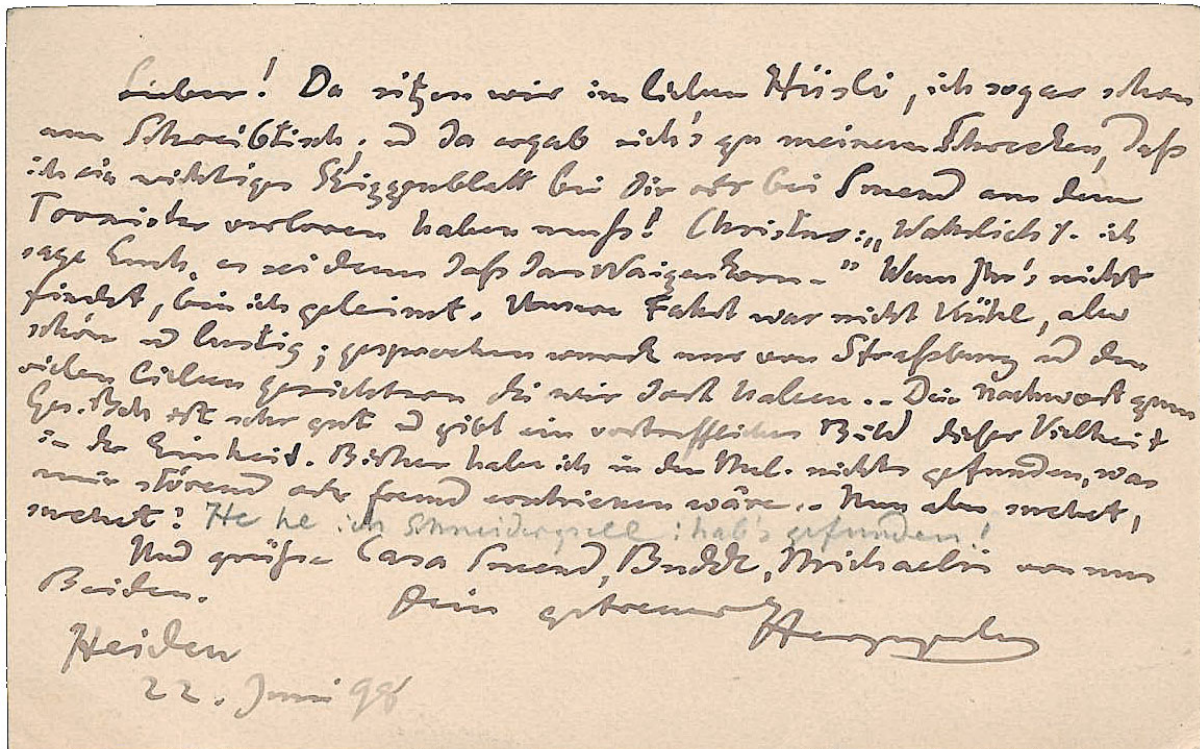 Lieber! Da sitzen wir im lieben Hüsli, ich sogar schon
am Schreibtisch, u da ergab sich's zu meinem Schrecken, daß
ich ein wichtiges Skizzenblatt bei Dir oder bei Smend aus dem
Tornister verloren haben muß! Christus: „Wahrlich, ich
sage Euch, es sei denn daß das Waizenkorn –" Wenn Ihr's nicht
findet, bin ich geleimt. Unsere Fahrt war nicht kühl, aber
schön u lustig; gesprochen wurde nur von Straßburg u den
vielen lieben Gesichtern die wir dort haben. – Dein Nachwort zum
Ges.Buch ist sehr gut u gibt ein vortreffliches Bild dieser Vielheit
in der Einheit. Bisher habe ich in den Mel. nichts gefunden, was
mir störend oder fremd erschienen wäre. – Nun aber suchet,
suchet! He he ich Schneidergsell : hab's gefunden!
Und grüße Casa Smend, Budde, Michaelis von uns
Beiden. Dein getreuer Herzogenberg
Heiden
22. Juni 98